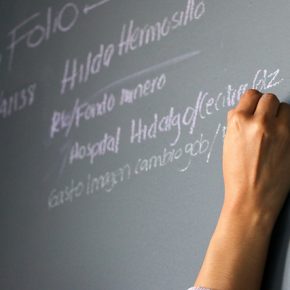 Folio
Hilda Hermosillo
Fondo minero
Hospital Hidalgo/Cecilia
Gasto Imagen cambio gob/